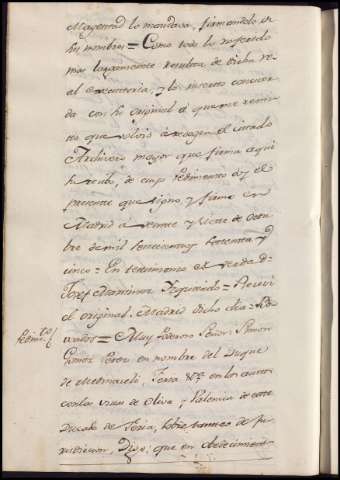 Magestad lo mandava, firmandolo en
su nombre = Como todo lo referido
mas largamente resulta de dicha re
al executoria, y lo inserto concuer
da con su original a que me remi
to que volvió a recoger el citado
Archivero mayor que firma aqui
su recibo, de cuyo pedimento doy el
presente que signo, y firmo en
Madrid a veinte y siete de Octu
bre de mil setecientos setenta y
cinco = En testimonio de verdad =
Josef Martinez Izquierdo = Recivi
el original. Madrid dicho dia =
= Muy Poderoso Señor = Simon
Gomez Perez en nombre del Duque
de Medinaceli, Feria &ª en los autos
con las villas de Oliva, y Palencia de este
Ducado de Feria, sobre tanteo de ju
risdiccion, Digo: que en obedecimiento
Pedim.to